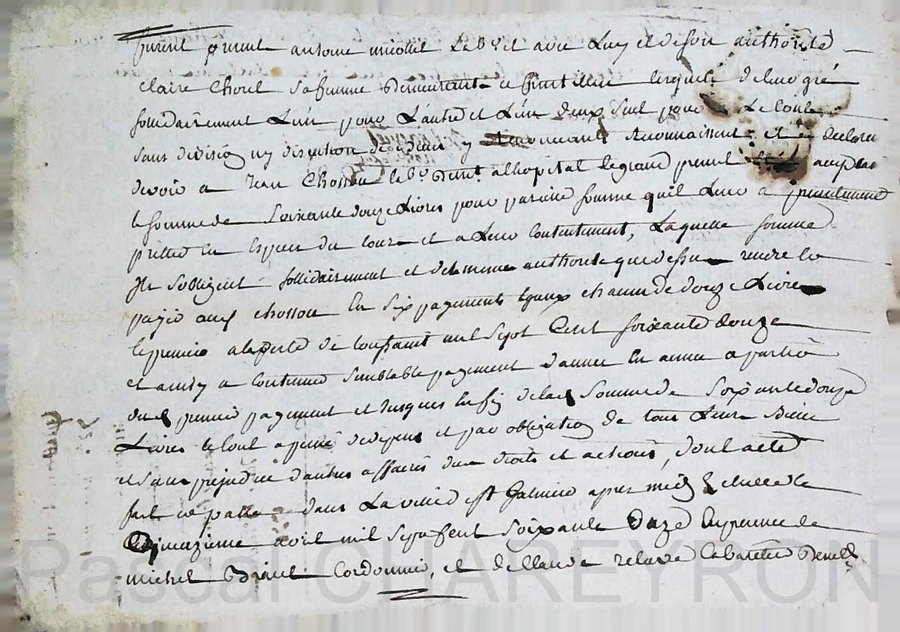 furent present antoine micollet Le b.r et avec Luy et de son authorité
claire chorel sa femme Demeurant a lesquels de leur gré
sollidairement L'un pour L'autre et L'un deux seul pour Le tout
sans division ny discution y Renoncant Reconnaissent et declare
devoir a Jean Chosson le b.r dem.t a lhopital le grand present acceptant
la somme de soixante douze Livres pour pareille somme quil Leur a presentement
pretté En Espece du cours et a Leur Contentement, Laquelle somme
Ils sobligent sollidairement et de la meme authorité que dessus rendre et
payer aud chosson En six payements Egaux chacun de douze Livres
le premier a la feste de toussaint mil sept Cent soixante douze
et ainsy a Continuer Semblable payement d'année En année a partir
dud premier payement et Jusques En fin de lad Somme de Soixante douze
Livres le tout a peine de depens et par obligation de tous Leurs Biens
et sans prejudice d'autres affaires deus droits et actions, dont acte
fait et passé dans La ville de st Galmier apres midy le
quinzieme avril mil sept Cent soixante douze En presence de
michel Cordonnier, et de Claude relave Cabaretier
Pascal CHAREYRON